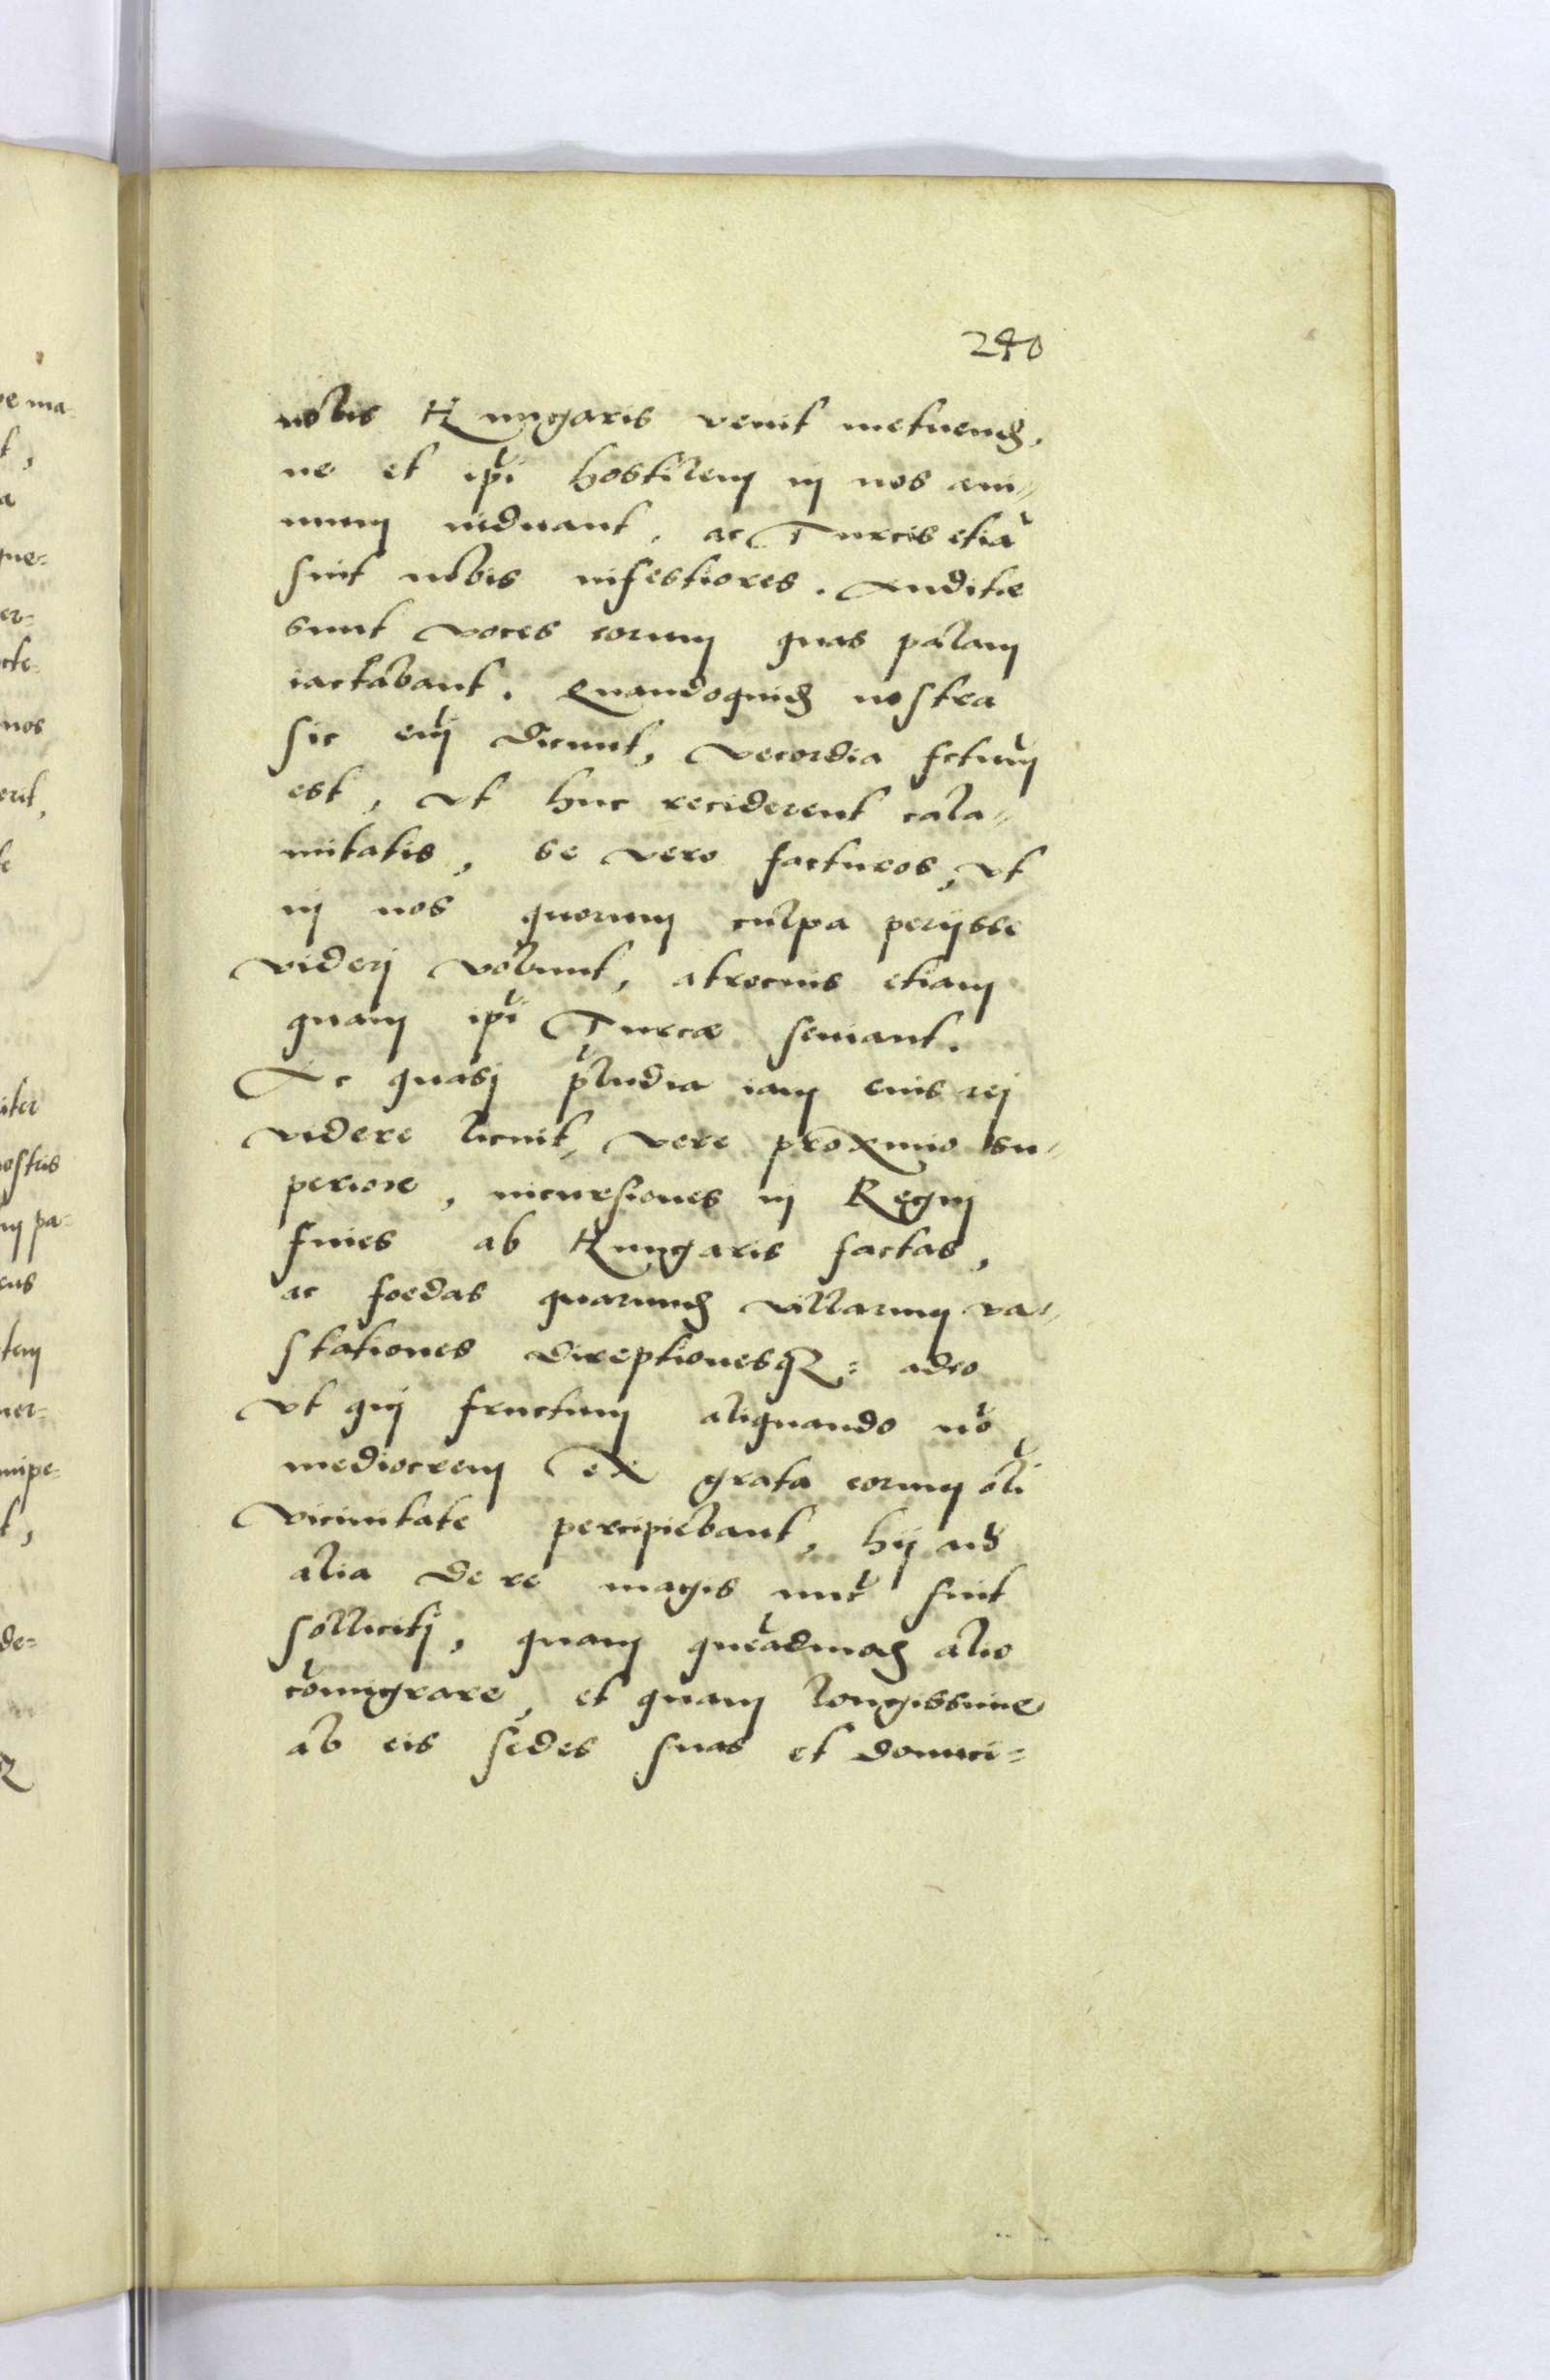 240
nobis Hungaris venit metuend,
ne et ip̃i hostilem in nos ani=
mum induant, ac Turcis etiã
sint nobis infestiores. Auditæ
sunt voces eorum quas palam
iactabant. Quandoquid nostra
sic em̃ dicunt, vecordia fctum̃
est, vt huc reciderent cala=
mitatis, se vero facturos, vt
in nos quorum culpa perijsse
viderj volunt, atrocius etiam
quam ip̃i Turcæ seuiant.
Ac quasj p̃ludia iam euis rej
videre licuit, vere proximo su=
periore, incursiones in Regnj
fines ab Hungaris factas,
ac foedas quarund villarum va=
stationes direptionesq₃: adeo
vt quj fructum aliquando nõ
mediocrem ex grata eorum olĩ
vicinitate percipiebant, hij
alia de re magis nũc sint
sollicitj, quam quẽadmod alio
cõmigrare, et quam longissime
ab eis sedes suas et domici=
ma=
nos